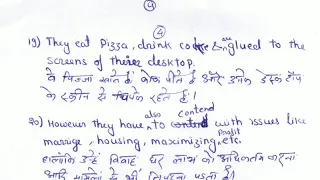 4
4
19) They eat Pizza, drink coke & are glued to the
screens of their desktop.
वे पिज्जा खाते हैं कोक पीते हैं और उनके डेस्क टॉप
के स्क्रीन से चिपके रहते हैं।
20) However they have also to contend with issues like
marrige, housing, maximizing Profit etc.
हालाँकि उन्हें विवाह घर लाभ को अधिकतम करना
आदि मामलों से भी निपटना पड़ता है।